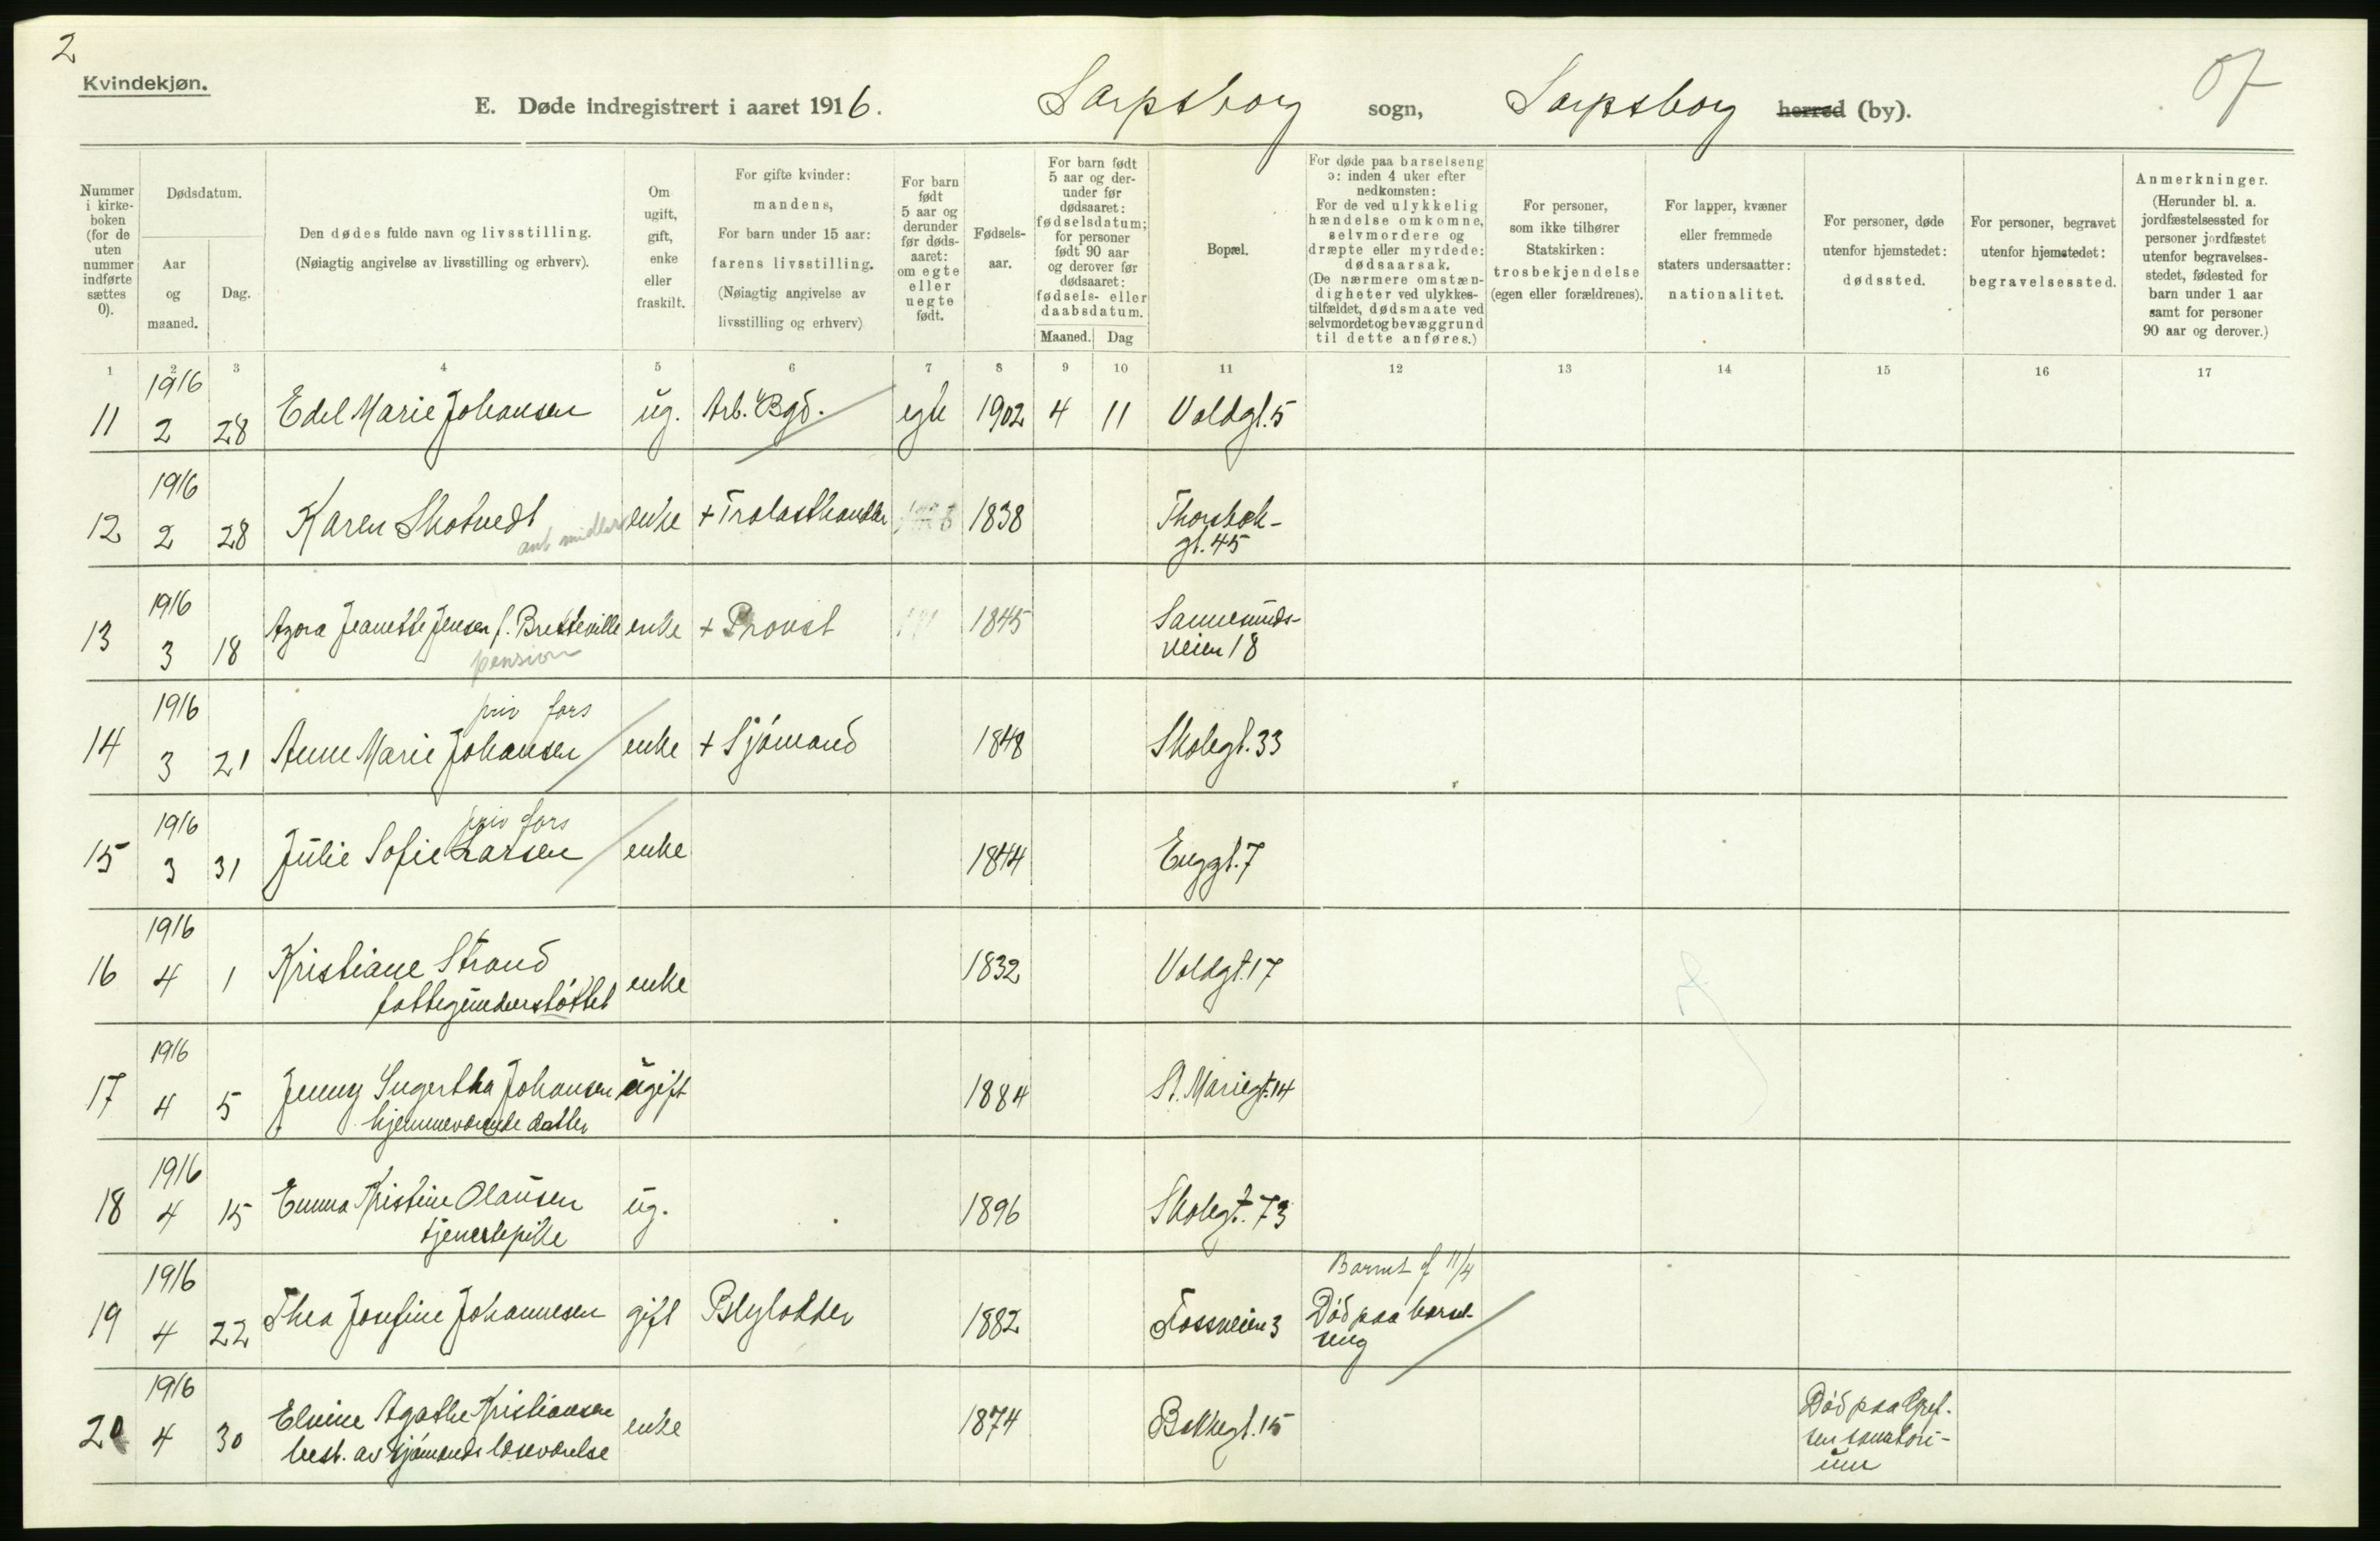 2
Kvindekjøn.
E. Døde indregistrert i aaret 1916. Sarpsborg sogn, Sarpsborg herred (by).
Nummer i kirke-boken (for de uten nummer indførte sættes 0).
Dødsdatum.
Aar og maaned.
Dag.
Den dødes fulde navn og livsstilling.
(Nøiagtig angivelse av livsstilling og erhverv).
Om ugift, gift, enke eller fraskilt.
For gifte kvinder:
mandens,
For barn under 15 aar:
farens livsstilling.
(Nøiagtig angivelse av
livsstilling og erhverv)
For barn født 5 aar og derunder før døds-aaret: om egte eller uegte født.
Fødsels-aar.
For barn født 5 aar og der-under før dødsaaret: fødselsdatum; for personer født 90 aar og derover før dødsaaret: fødsels- eller daabsdatum.
Maaned. Dag
Bopæl.
For døde paa barselseng ɔ: inden 4 uker efter nedkomsten: For de ved ulykkelig hændelse omkomne, selvmordere og dræpte eller myrdede: dødsaarsak. (De nærmere omstæn-digheter ved ulykkes-tilfældet, dødsmaate ved selvmordet og bevæggrund til dette anføres.)
For personer, som ikke tilhører Statskirken: trosbekjendelse (egen eller forældrenes).
For lapper, kvæner eller fremmede staters undersaatter: nationalitet.
For personer, døde utenfor hjemstedet: dødssted.
For personer, begravet utenfor hjemstedet: begravelsessted.
Anmerkninger.
(Herunder bl. a. jordfæstelsessted for personer jordfæstet utenfor begravelses-stedet, fødested for barn under 1 aar samt for personer 90 aar og derover.)
1 2 3 4 5 6 7 8 9 10 11 12 13 14 15 16 17
1916
11 2 28 Edel Marie Johansen ug. Arb. Bgd. egte 1902 4 11 Voldgt. 5
1916
12 2 28 Karen Skotvedt enke + Trælasthandler 1838 Thorsbek-
gt. 45
1916
13 3 18 Agora Jeanette Jensen f. Bretteville enke + Provst 1845 Sannesunds-
pension veien 18
1916 priv fors
14 3 21 Anne Marie Johansen enke + Sjømand 1848 Skolegt. 33
1916 priv fors
15 3 31 Julie Sofie Larsen enke 1844 Enggt. 7
1916
16 4 1 Kristiane Strand enke 1832 Voldgt. 17
fattigunderstøttet
1916
17 4 5 Jenny Ingertha Johansen ugift 1884 St. Mariegt. 14
hjemmeværende datter
1916
18 4 15 Emma Kristine Olausen ug. 1896 Skolegt. 73
tjenestepike
1916 Barnet f 11/4
19 4 22 Thea Josefine Johannesen gift 1882 Fossveien 3 Død paa barsel-
seng
1916
20 4 30 Elvine Agathe Kristiansen enke 1874 Bakkegt. 15 Død paa Gref-
best. av sjømands læseværelse sen sanatori-
um